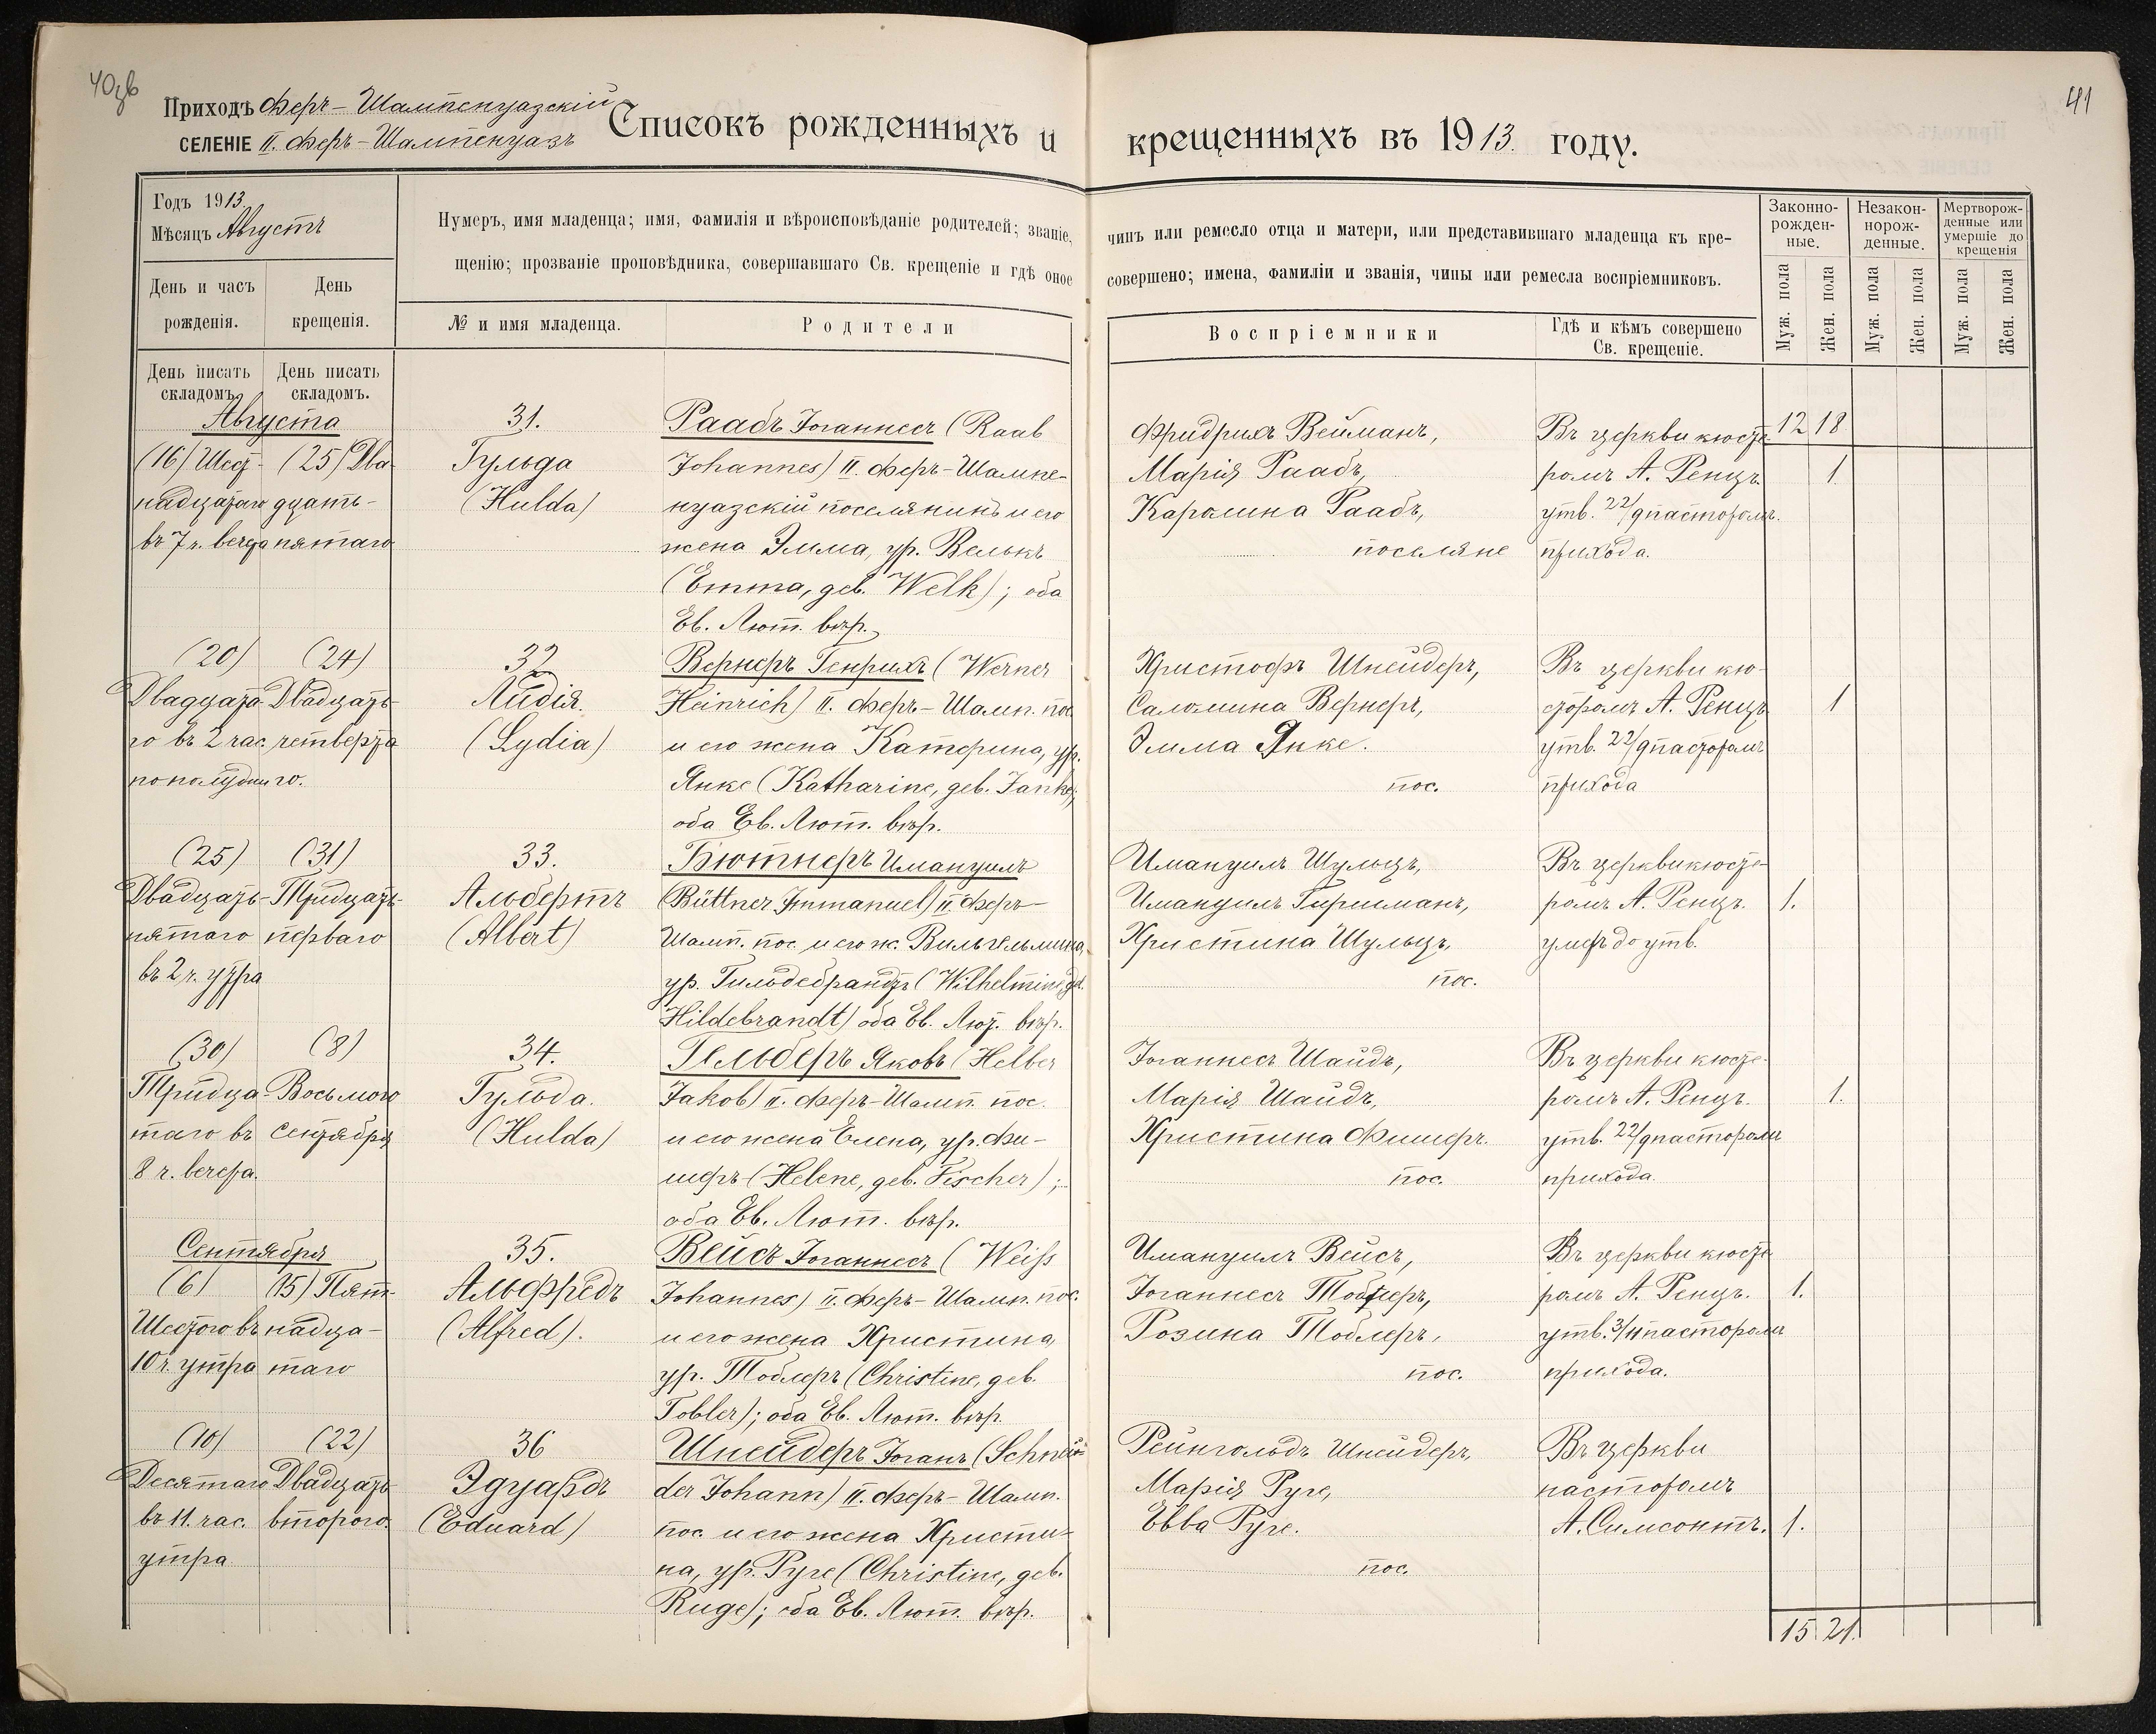 40 зв
41
Приходъ Феръ-Шампенуазскій
СЕЛЕНІЕ II. Феръ-Шампенуазъ
Списокъ рожденныхъ и крещенныхъ въ 1913. году.
Годъ 1913.
Мѣсяцъ Августъ
День и часъ рожденія.
День крещенія.
Нумеръ, имя младенца; имя, фамилія и вѣроисповѣданіе родителей; званіе, чинъ или ремесло отца и матери, или представившаго младенца къ кре-
щенію; прозваніе проповѣдника, совершавшаго Св. крещеніе и гдѣ оное совершено; имена, фамиліи и званія, чины или ремесла воспріемниковъ.
№ и имя младенца.
Родители
Воспріемники
Гдѣ и кѣмъ совершено
Св. крещеніе.
Законно-
рожден-
ные.
Незакон-
норож-
денные.
Мертворож-
денные или
умершіе до
крещенія
Муж. пола
Жен. пола
Муж. пола
Жен. пола
Муж. пола
Жен. пола
День писать
складомъ.
День писать
складомъ.
Августа
(16) Шест-
надцатаго
въ 7 ч. вечера
(25) Два-
дцать-
пятаго
31.
Гульда
(Hulda)
Раабъ Іоганнесъ (Raab
Johannes) II. Феръ-Шампе-
нуазскій поселянинъ и его
жена Эмма, ур. Велькъ
(Emma, geb. Welk); оба
Ев. Лют. вѣр.
Фридрихъ Вейманъ,
Марія Раабъ,
Каролина Раабъ,
поселяне
Въ церкви кюсте-
ромъ А. Ренцъ
утв. 22/9 пасторомъ
прихода.
12 18
1.
(20)
Двадцата-
го въ 2 час.
пополудни
(24)
Двадцать-
четверта
го.
32
Лидія.
(Lydia)
Вернеръ Генрихъ (Werner
Heinrich) II. Феръ-Шамп. пос.
и его жена Катерина, ур.
Янке (Katharine, geb. Janke);
оба Ев. Лют. вѣр.
Христофъ Шнейдеръ,
Саломина Вернеръ,
Эмма Янке.
пос.
Въ церкви кю-
стеромъ А. Ренцъ
утв. 22/9 пасторомъ
прихода
1
(25)
Двадцать-
пятаго
въ 2 ч. утра
(31)
Тридцать-
перваго
33.
Альбертъ
(Albert)
Бютнеръ Имануилъ
(Büttner Immanuel) II. Феръ-
Шамп. пос. и его ж. Вильгельмина,
ур. Гильдебрандтъ (Wilhelmine, geb.
Hildebrandt) оба Ев. Лют. вѣр.
Имануилъ Шульцъ,
Имануилъ Гиршманъ,
Христина Шульцъ,
пос.
Въ церкви кюсте-
ромъ А. Ренцъ.
умеръ до утв.
1.
(30)
Тридца-
таго въ
8 ч. вечера.
(8)
Восьмого
сентября
34.
Гульда.
(Hulda)
Гельберъ Яковъ (Helber
Jakob) II. Феръ-Шамп. пос.
и его жена Елена, ур. Фи-
шеръ (Helene, geb. Fischer);
оба Ев. Лют. вѣр.
Іоганнесъ Шайдъ,
Марія Шайдъ,
Христина Фишеръ.
пос.
Въ церкви кюсте-
ромъ А. Ренцъ.
утв. 22/9 пасторомъ
прихода.
1.
Сентября
(6)
Шестого въ
10 ч. утра
(15) Пят-
надца-
таго
35.
Альфредъ
(Alfred).
Вейсъ Іоганнесъ (Weiß
Johannes) II. Феръ-Шамп. пос.
и его жена Христина,
ур. Тоблеръ (Christine, geb.
Tobler); оба Ев. Лют. вѣр.
Имануилъ Вейсъ,
Іоганнесъ Тоблеръ,
Розина Тоблеръ,
пос.
Въ церкви кюсте
ромъ А. Ренцъ.
утв. 3/11 пасторомъ
прихода.
1.
(10)
Десятаго
въ 11. час.
утра
(22)
Двадцать
второго.
36
Эдуардъ
(Eduard)
Шнейдеръ Іоганъ (Schnei-
der Johann) II. Феръ-Шамп.
пос. и его жена Христи-
на, ур. Руге (Christine, geb.
Ruge); оба Ев. Лют. вѣр.
Рейнгольдъ Шнейдеръ,
Марія Руге,
Евва Руге.
пос.
Въ церкви
пасторомъ
А. Симсонтъ.
1.
15. 21.